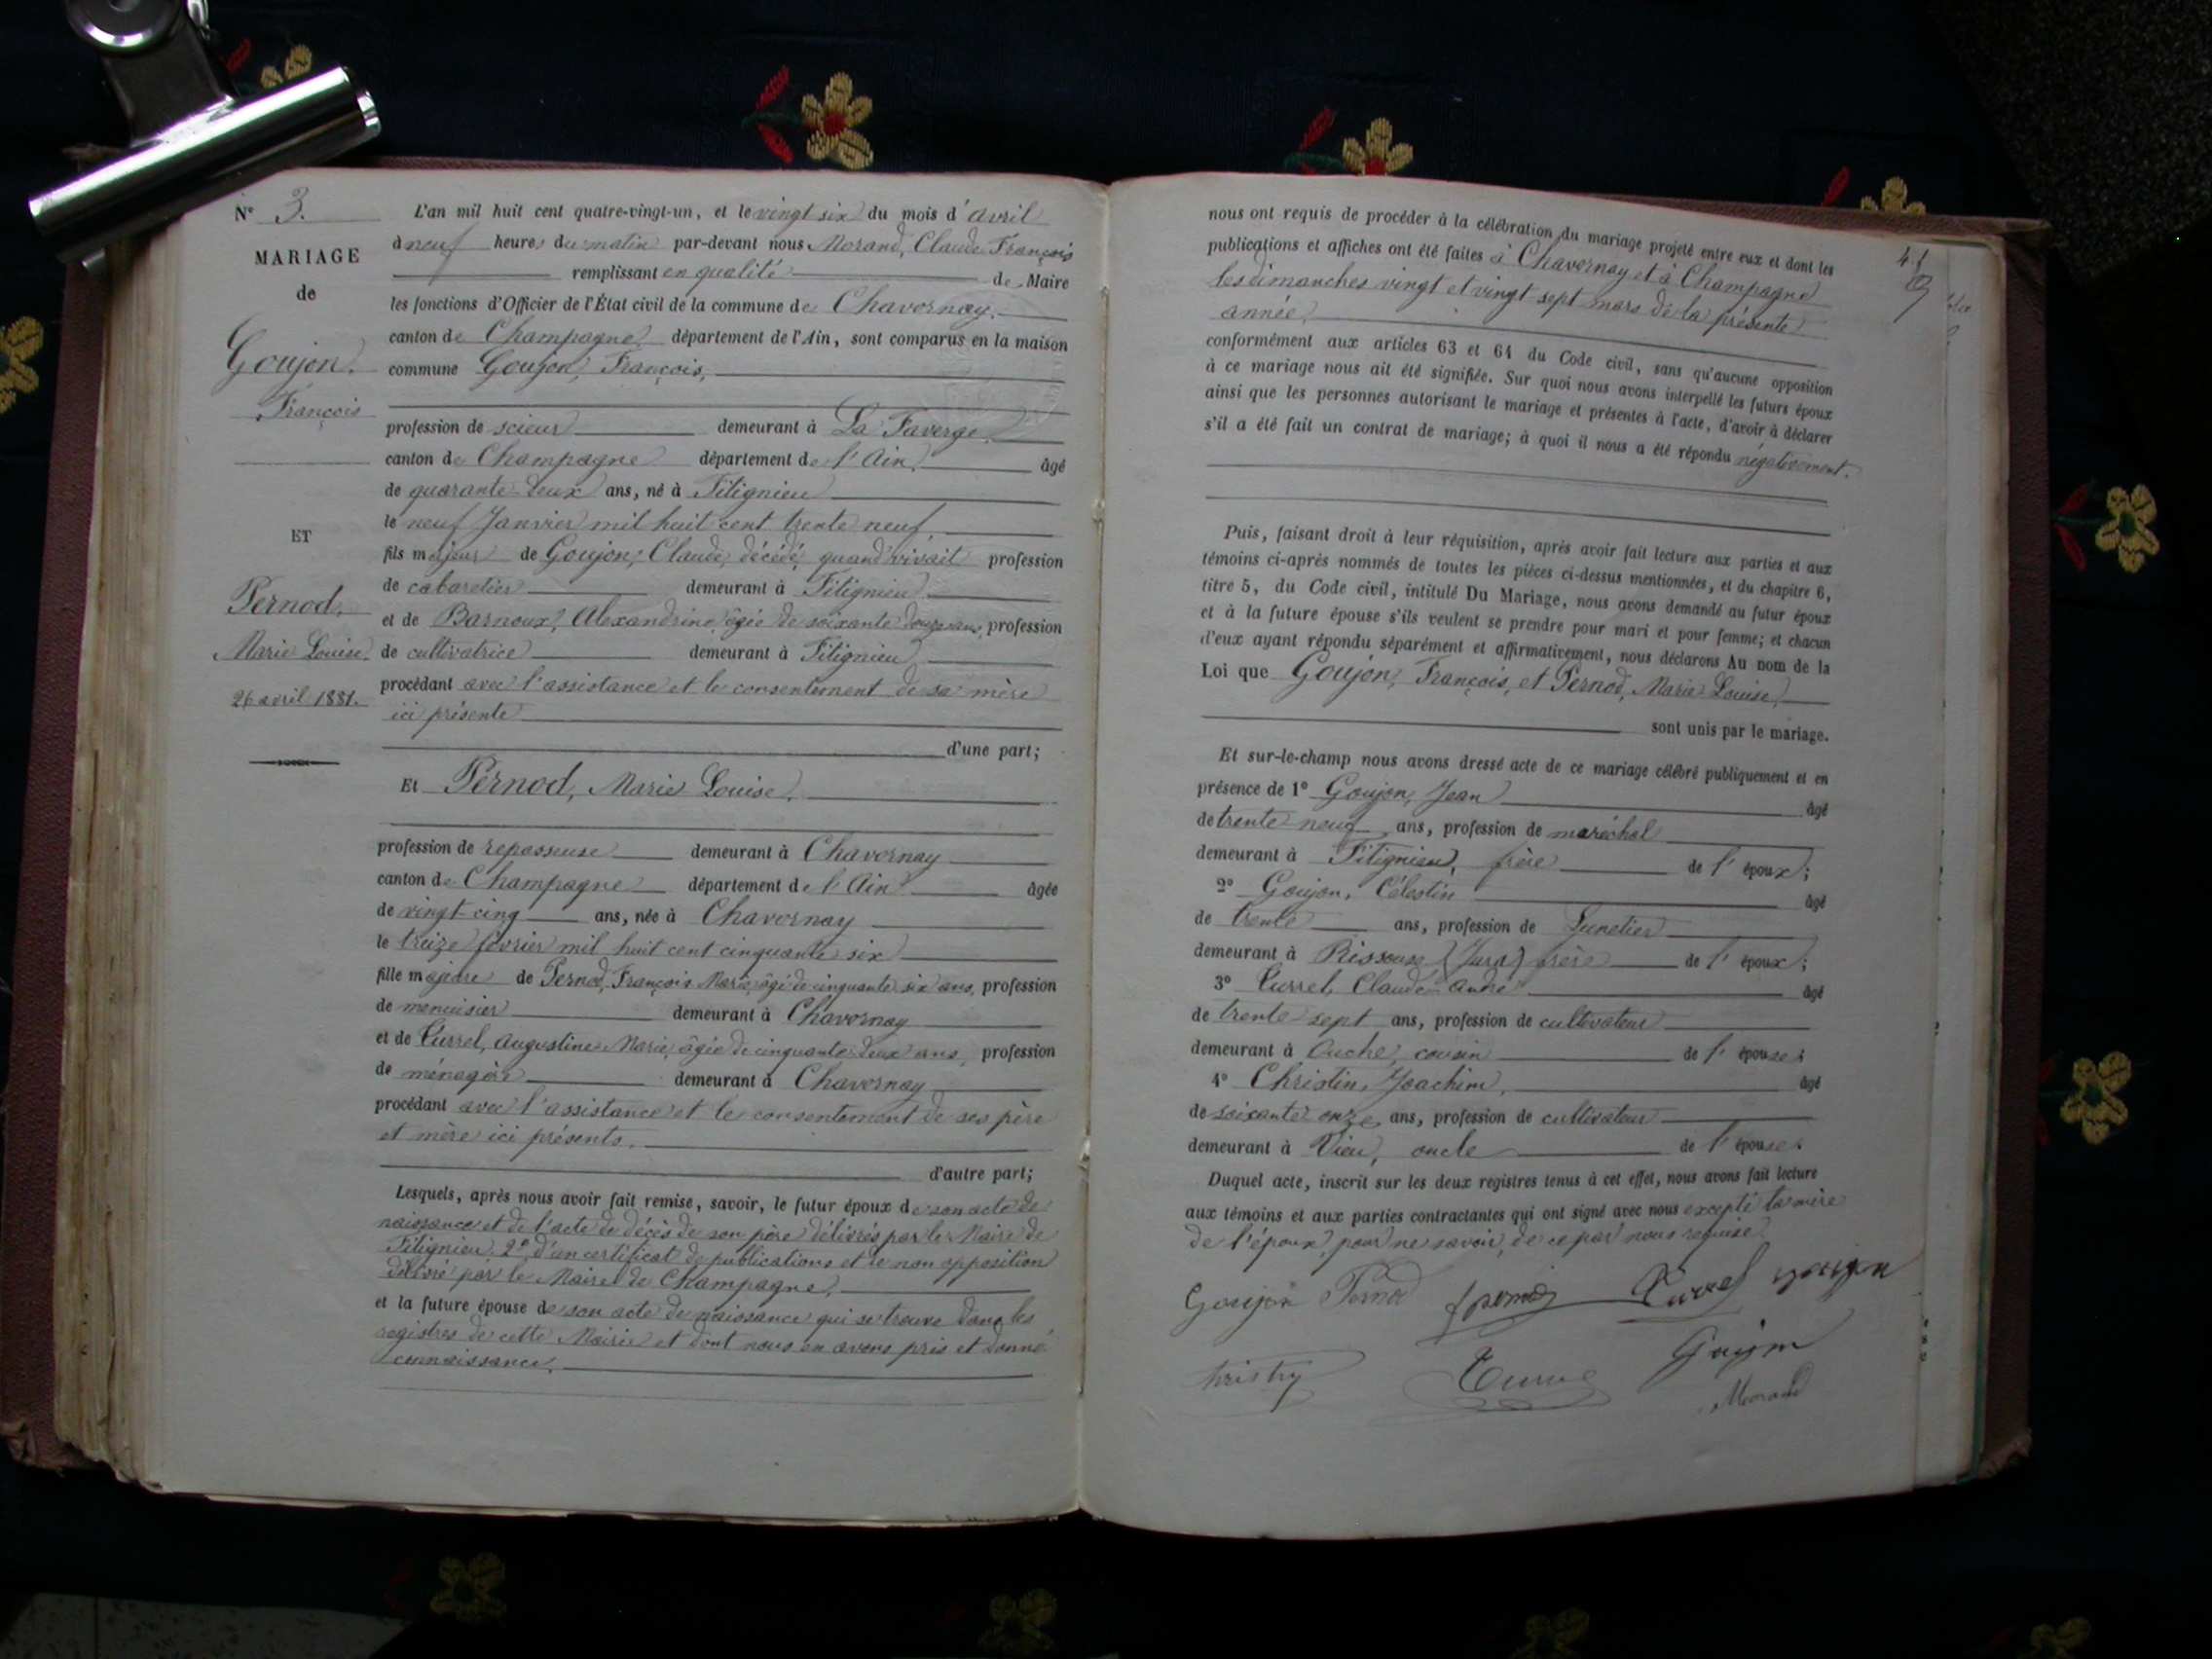 N° 3.
MARIAGE
de
Goujon.
François
ET
Pernod,
Marie Louise.
26 avril 1881.
L'an mil huit cent quatre-vingt-un, et le vingt six du mois d'avril
à neuf heures du matin par-devant nous Morand, Claude François
remplissant en qualité de Maire
les fonctions d'Officier de l'État civil de la commune de Chavornay.
canton de Champagne département de l'Ain, sont comparus en la maison
commune Goujon, François,
profession de scieur demeurant à La Faverge
canton de Champagne département de l'Ain. âgé
de quarante-deux ans, né à Titignieu
le neuf Janvier mil huit cent trente neuf
fils majeur de Goujon, Claude, décédé, quand vivait profession
de cabaretier demeurant à Titignieu
et de Barnoux, Alexandrine, âgée de soixante douze ans, profession
de cultivatrice demeurant à Titignieu
procédant avec l'assistance et le consentement de sa mère
ici présente
d'une part;
Et Pernod, Marie Louise,
profession de repasseuse demeurant à Chavornay
canton de Champagne département de l'Ain âgée
de vingt-cinq ans, née à Chavornay
le treize février mil huit cent cinquante six
fille majeure de Pernod, François Marie, âgé de cinquante six ans, profession
de menuisier demeurant à Chavornay
et de Currel, Augustine Marie, âgée de cinquante-deux ans, profession
de ménagère demeurant à Chavornay
procédant avec l'assistance et le consentement de ses père
et mère ici présents.
d'autre part;
Lesquels, après nous avoir fait remise, savoir, le futur époux de son acte de
naissance et de l'acte de décès de son père délivrés par le Maire de
Titignieu 2° d'un certificat de publications et de non opposition
délivré par le Maire de Champagne,
et la future épouse de son acte de naissance qui se trouve dans les
registres de cette Mairie et dont nous en avons pris et donné
connaissance.
nous ont requis de procéder à la célébration du mariage projeté entre eux et dont les
publications et affiches ont été faites à Chavornay et à Champagne
les dimanches vingt et vingt-sept mars de la présente
année,
conformément aux articles 63 et 64 du Code civil, sans qu'aucune opposition
à ce mariage nous ait été signifiée. Sur quoi nous avons interpellé les futurs époux
ainsi que les personnes autorisant le mariage et présentes à l'acte, d'avoir à déclarer
s'il a été fait un contrat de mariage; à quoi il nous a été répondu négativement.
Puis, faisant droit à leur réquisition, après avoir fait lecture aux parties et aux
témoins ci-après nommés de toutes les pièces ci-dessus mentionnées, et du chapitre 6,
titre 5, du Code civil, intitulé Du Mariage, nous avons demandé au futur époux
et à la future épouse s'ils veulent se prendre pour mari et pour femme; et chacun
d'eux ayant répondu séparément et affirmativement, nous déclarons Au nom de la
Loi que Goujon, François, et Pernod, Marie Louise,
sont unis par le mariage.
Et sur-le-champ nous avons dressé acte de ce mariage célébré publiquement et en
présence de 1° Goujon, Jean âgé
de trente-neuf ans, profession de maréchal
demeurant à Titignieu, frère de l'époux;
2° Goujon, Célestin âgé
de trente ans, profession de Lunetier
demeurant à Rissouse (Jura) frère de l'époux;
3° Currel, Claude André âgé
de trente sept ans, profession de cultivateur
demeurant à Ouche, cousin de l'épouse;
4° Christin, Joachim, âgé
de soixante onze ans, profession de cultivateur
demeurant à Vieu, oncle de l'épouse.
Duquel acte, inscrit sur les deux registres tenus à cet effet, nous avons fait lecture
aux témoins et aux parties contractantes qui ont signé avec nous excepté la mère
de l'époux, pour ne savoir, de ce par nous requise.
Goujon Pernod Currel
Goujon
Morand